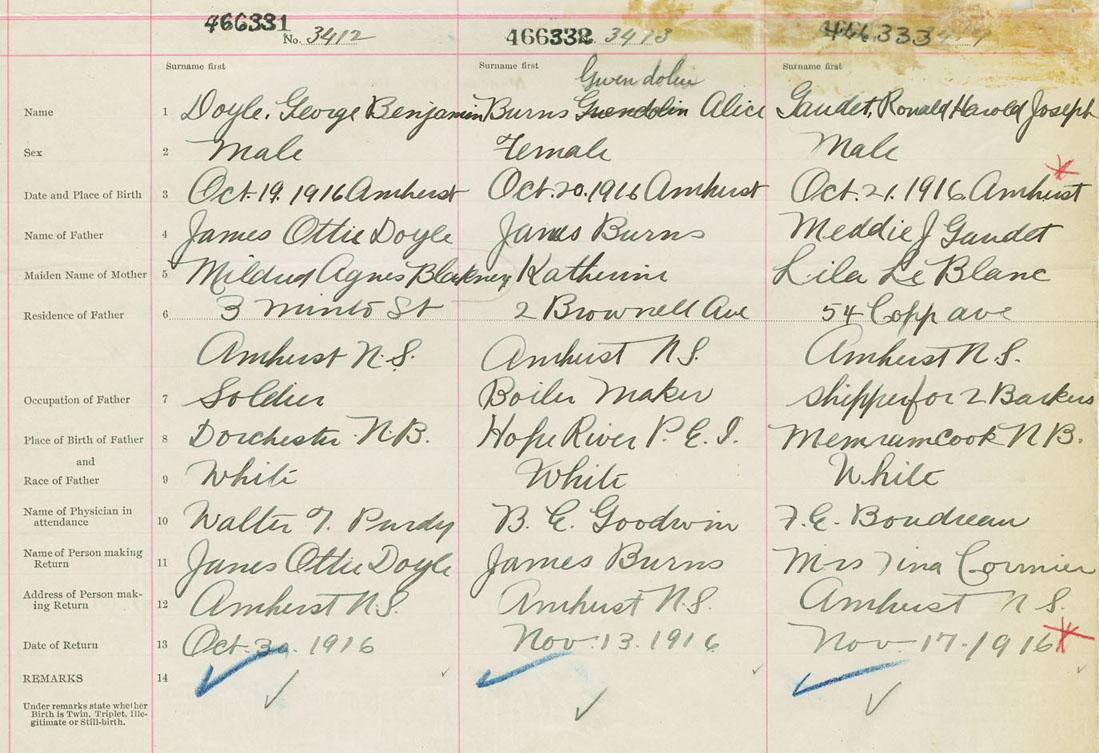 466331 466332 466333
No. 3412 3413
Surname first Surname first Surname first
Gwendolin
Name 1 Doyle, George Benjamin Burns Gwendolin Alice Gaudet, Ronald Harold Joseph
Sex 2 Male Female Male
Date and Place of Birth 3 Oct. 19. 1916 Amherst Oct. 20. 1916 Amherst Oct. 21. 1916 Amherst
Name of Father 4 James Ottie Doyle James Burns Meddie J Gaudet
Maiden Name of Mother 5 Mildred Agnes Blakney Katherine Lila Le Blanc
Residence of Father 6 3 Minto St 2 Brownell Ave 54 Copp ave
Amherst N.S. Amherst N.S. Amherst N.S.
Occupation of Father 7 Soldier Boiler Maker shipper for 2 Barkers
Place of Birth of Father 8 Dorchester N.B. Hope River P.E.I. Memramcook N.B.
and
Race of Father 9 White White White
Name of Physician in
attendance 10 Walter T. Purdy B. E. Goodwin F. E. Boudreau
Name of Person making
Return 11 James Ottie Doyle James Burns Mrs Tina Cormier
Address of Person mak-
ing Return 12 Amherst N.S. Amherst N.S. Amherst N.S.
Date of Return 13 Oct. 30. 1916 Nov. 13. 1916 Nov. 17. 1916
REMARKS 14
Under remarks state whether
Birth is Twin, Triplet, Ille-
gitimate or Still-birth.